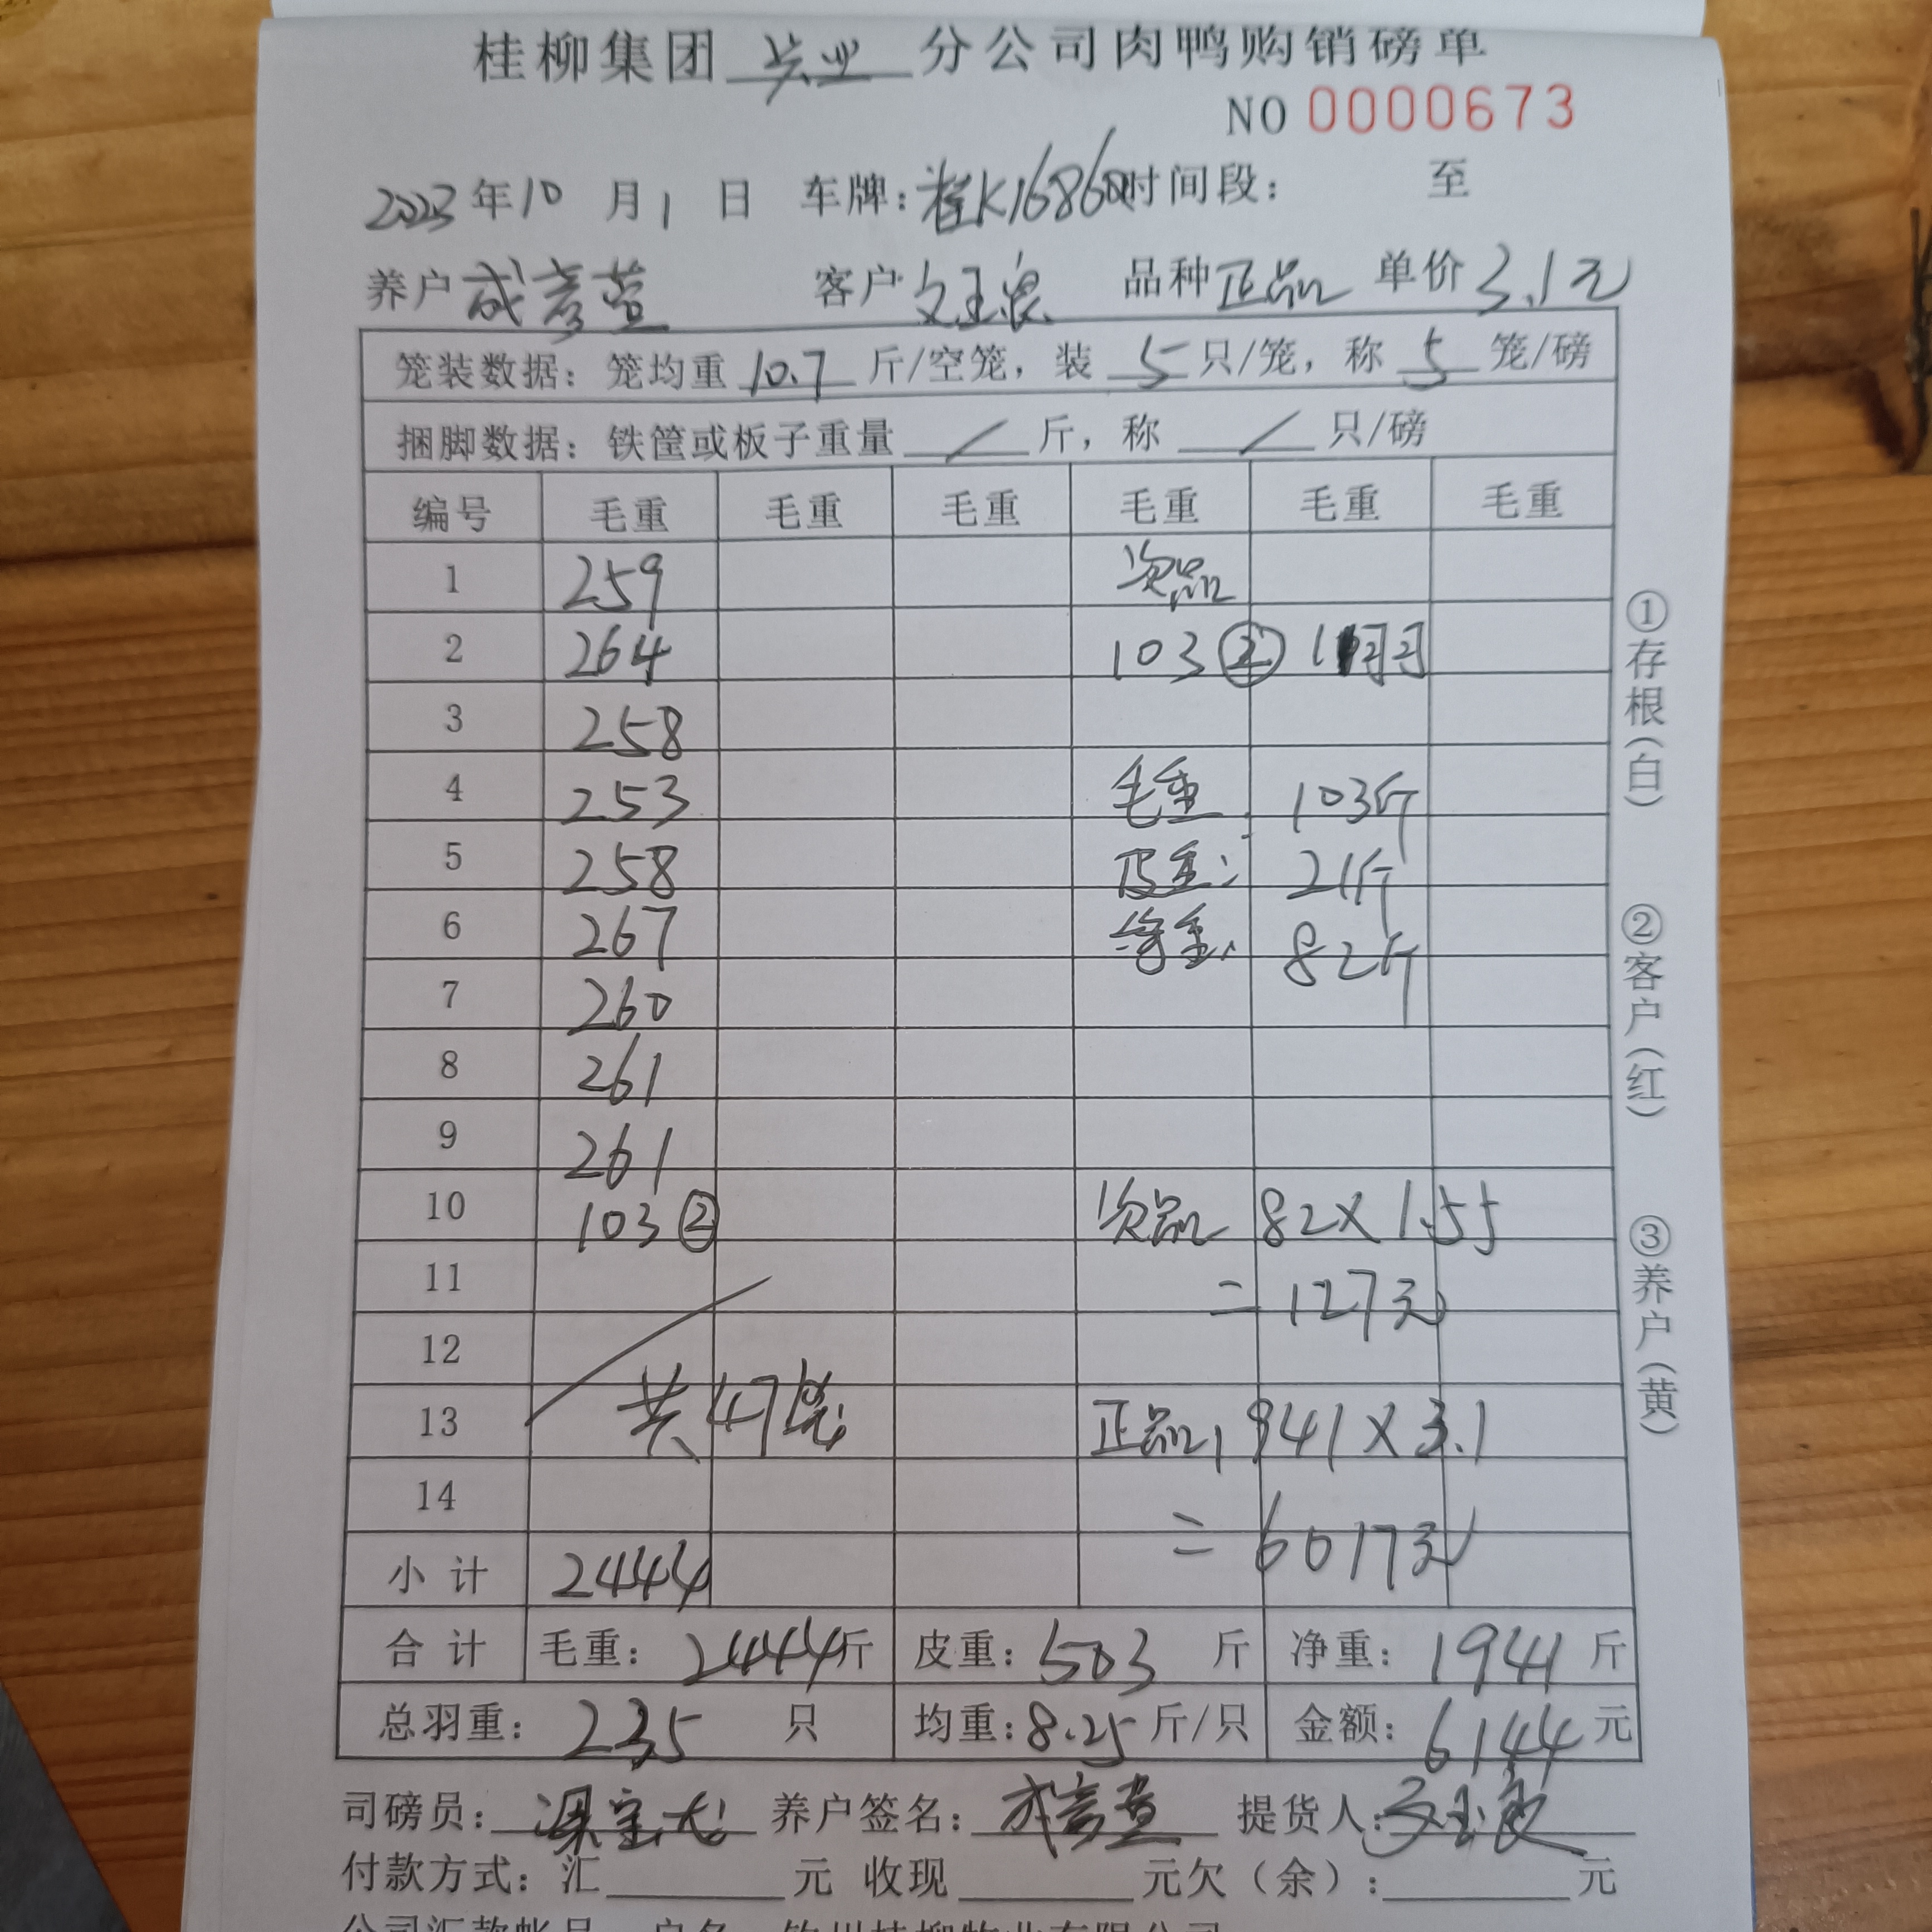 桂柳集团 兴业 分公司肉鸭购销磅单
NO 0000673
2023年10月1日 车牌:桂K1686 时间段: 至
养户 成彦萱 客户 文玉良 品种 正品 单价 3.1元
笼装数据: 笼均重 10.7 斤/空笼, 装 5 只/笼, 称 5 笼/磅
捆脚数据: 铁筐或板子重量 / 斤, 称 / 只/磅
编号 毛重 毛重 毛重 毛重 毛重 毛重
1 259 次品
2 264 103 ②
3 258
4 253 毛重: 103斤
5 258 皮重: 21斤
6 267 净重: 82斤
7 260
8 261
9 261
10 103 ② 次品 82×1.55
11 =127元
12
13 共47笼 正品 1941×3.1
14 =6017元
小计 2444
合计 毛重: 2444斤 皮重: 503 斤 净重: 1941 斤
总羽重: 235 只 均重: 8.25 斤/只 金额: 6144 元
司磅员: 养户签名: 成彦萱 提货人: 文玉良
付款方式: 汇 元 收现 元欠(余): 元
①存根(白)
②客户(红)
③养户(黄)